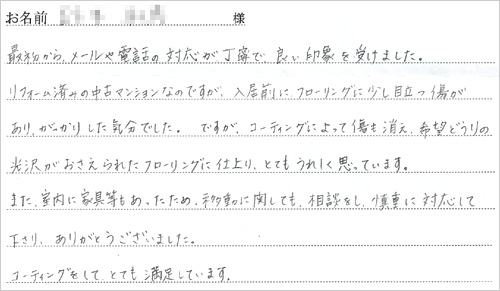 お名前 様
最初から、メールや電話の対応が丁寧で、良い印象を受けました。
リフォーム済みの中古マンションなのですが、入居前に、フローリングに少し目立つ傷が
あり、がっかりした気分でした。 ですが、コーティングによって傷も消え、希望どうりの
光沢がおさえられたフローリングに仕上り、とてもうれしく思っています。
また、室内に家具等もあったため、移動に関しても、相談をし、慎重に対応して
下さり、ありがとうございました。
コーティングをして、とても満足しています。